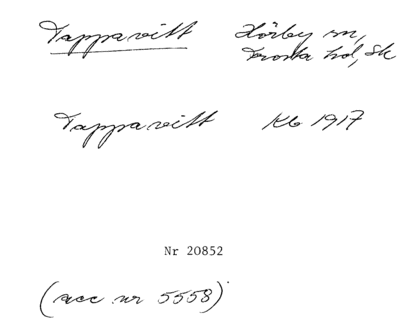 Tappavitt Hörby sn,
Frosta hd, Sk
Tappavitt Kb 1917
Nr 20852
(acc nr 5558)